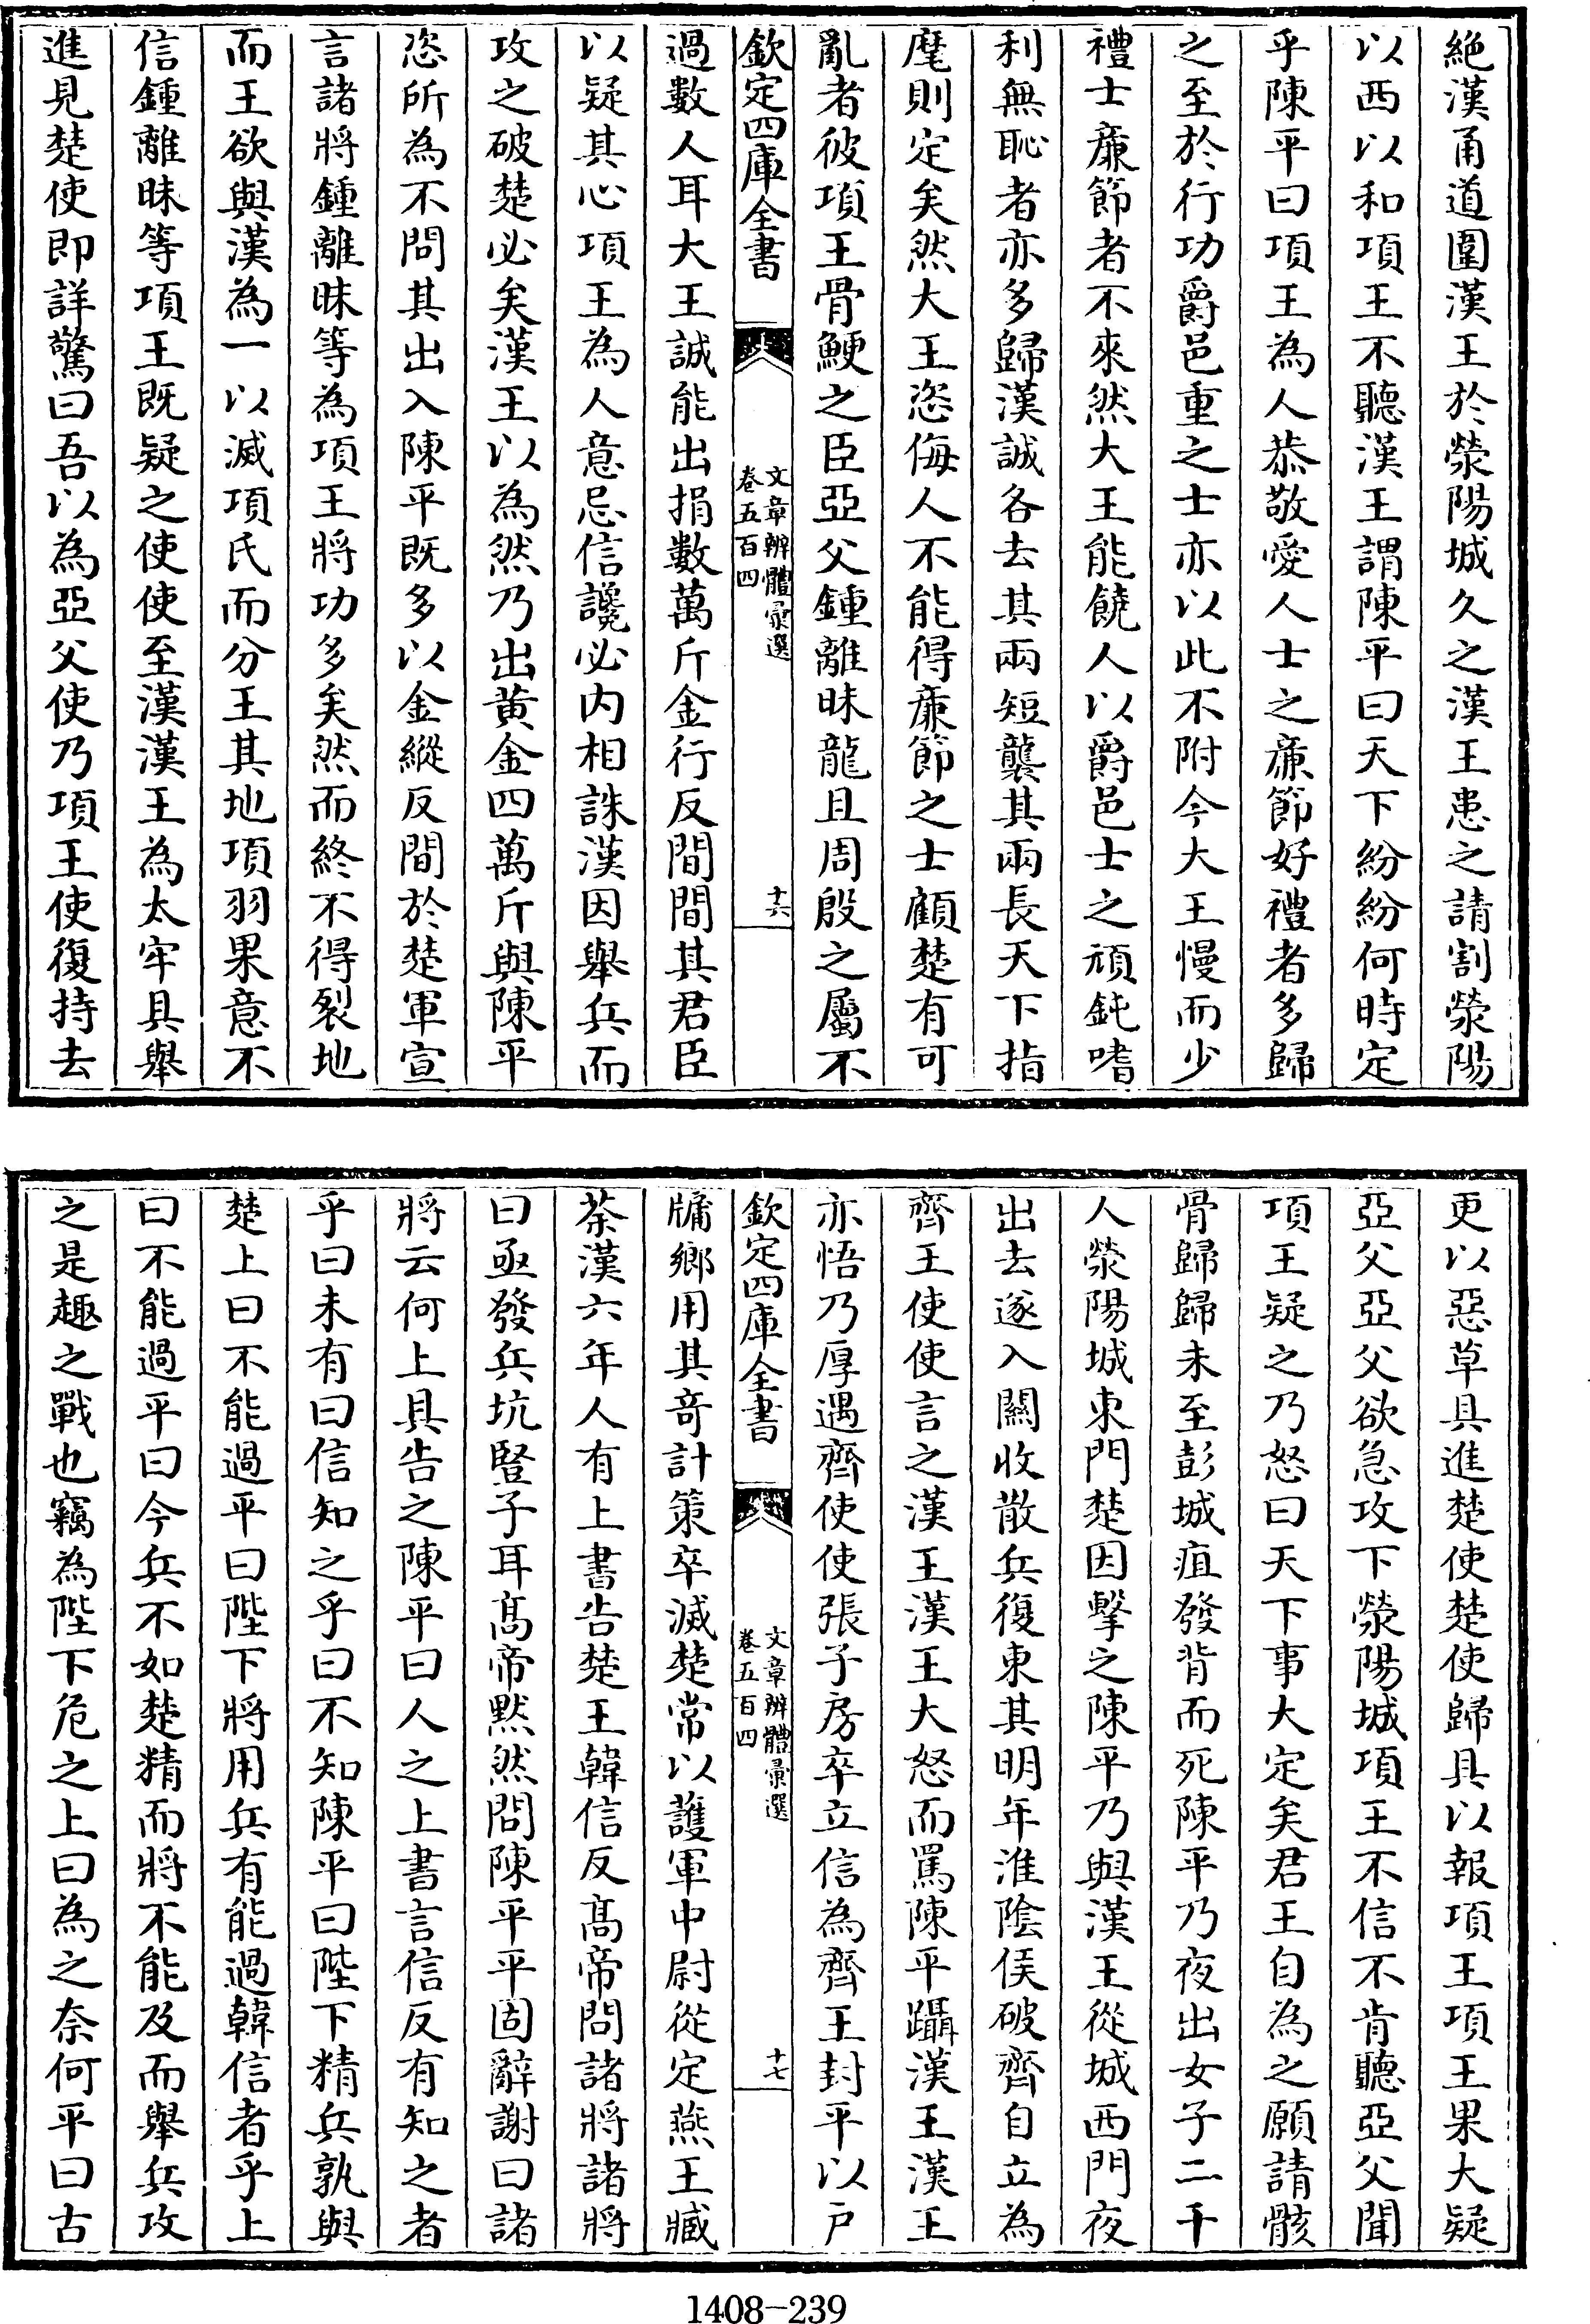 絶漢甬道圍漢王於滎陽城久之漢王患之請割滎陽
以西以和項王不聽漢王謂陳平曰天下紛紛何時定
乎陳平曰項王為人恭敬愛人士之亷節好禮者多歸
之至於行功爵邑重之士亦以此不附今大王慢而少
禮士亷節者不來然大王能饒人以爵邑士之頑鈍嗜
利無恥者亦多歸漢誠各去其兩短襲其兩長天下指
麾則定矣然大王恣侮人不能得亷節之士顧楚有可
亂者彼項王骨鯁之臣亞父鍾離眛龍且周殷之屬不
欽定四庫全書
文章辨體彙選
卷五百四
十六
過數人耳大王誠能出捐數萬斤金行反間間其君臣
以疑其心項王為人意忌信讒必内相誅漢因舉兵而
攻之破楚必矣漢王以為然乃出黄金四萬斤與陳平
恣所為不問其出入陳平既多以金縱反間於楚軍宣
言諸將鍾離眛等為項王將功多矣然而終不得裂地
而王欲與漢為一以滅項氏而分王其地項羽果意不
信鍾離眛等項王既疑之使使至漢漢王為太牢具舉
進見楚使即詳驚曰吾以為亞父使乃項王使復持去
更以惡草具進楚使楚使歸具以報項王項王果大疑
亞父亞父欲急攻下滎陽城項王不信不肯聽亞父聞
項王疑之乃怒曰天下事大定矣君王自為之願請骸
骨歸歸未至彭城疽發背而死陳平乃夜出女子二千
人滎陽城東門楚因擊之陳平乃與漢王從城西門夜
出去遂入關收散兵復東其明年淮隂侯破齊自立為
齊王使使言之漢王漢王大怒而罵陳平躡漢王漢王
亦悟乃厚遇齊使使張子房卒立信為齊王封平以戸
欽定四庫全書
文章辨體彙選
卷五百四
十七
牖鄉用其奇計策卒滅楚常以䕶軍中尉從定燕王臧
荼漢六年人有上書告楚王韓信反髙帝問諸將諸將
曰亟發兵坑豎子耳髙帝黙然問陳平平固辭謝曰諸
將云何上具告之陳平曰人之上書言信反有知之者
乎曰未有曰信知之乎曰不知陳平曰陛下精兵孰與
楚上曰不能過平曰陛下將用兵有能過韓信者乎上
曰不能過平曰今兵不如楚精而將不能及而舉兵攻
之是趣之戰也竊為陛下危之上曰為之奈何平曰古
1408-239